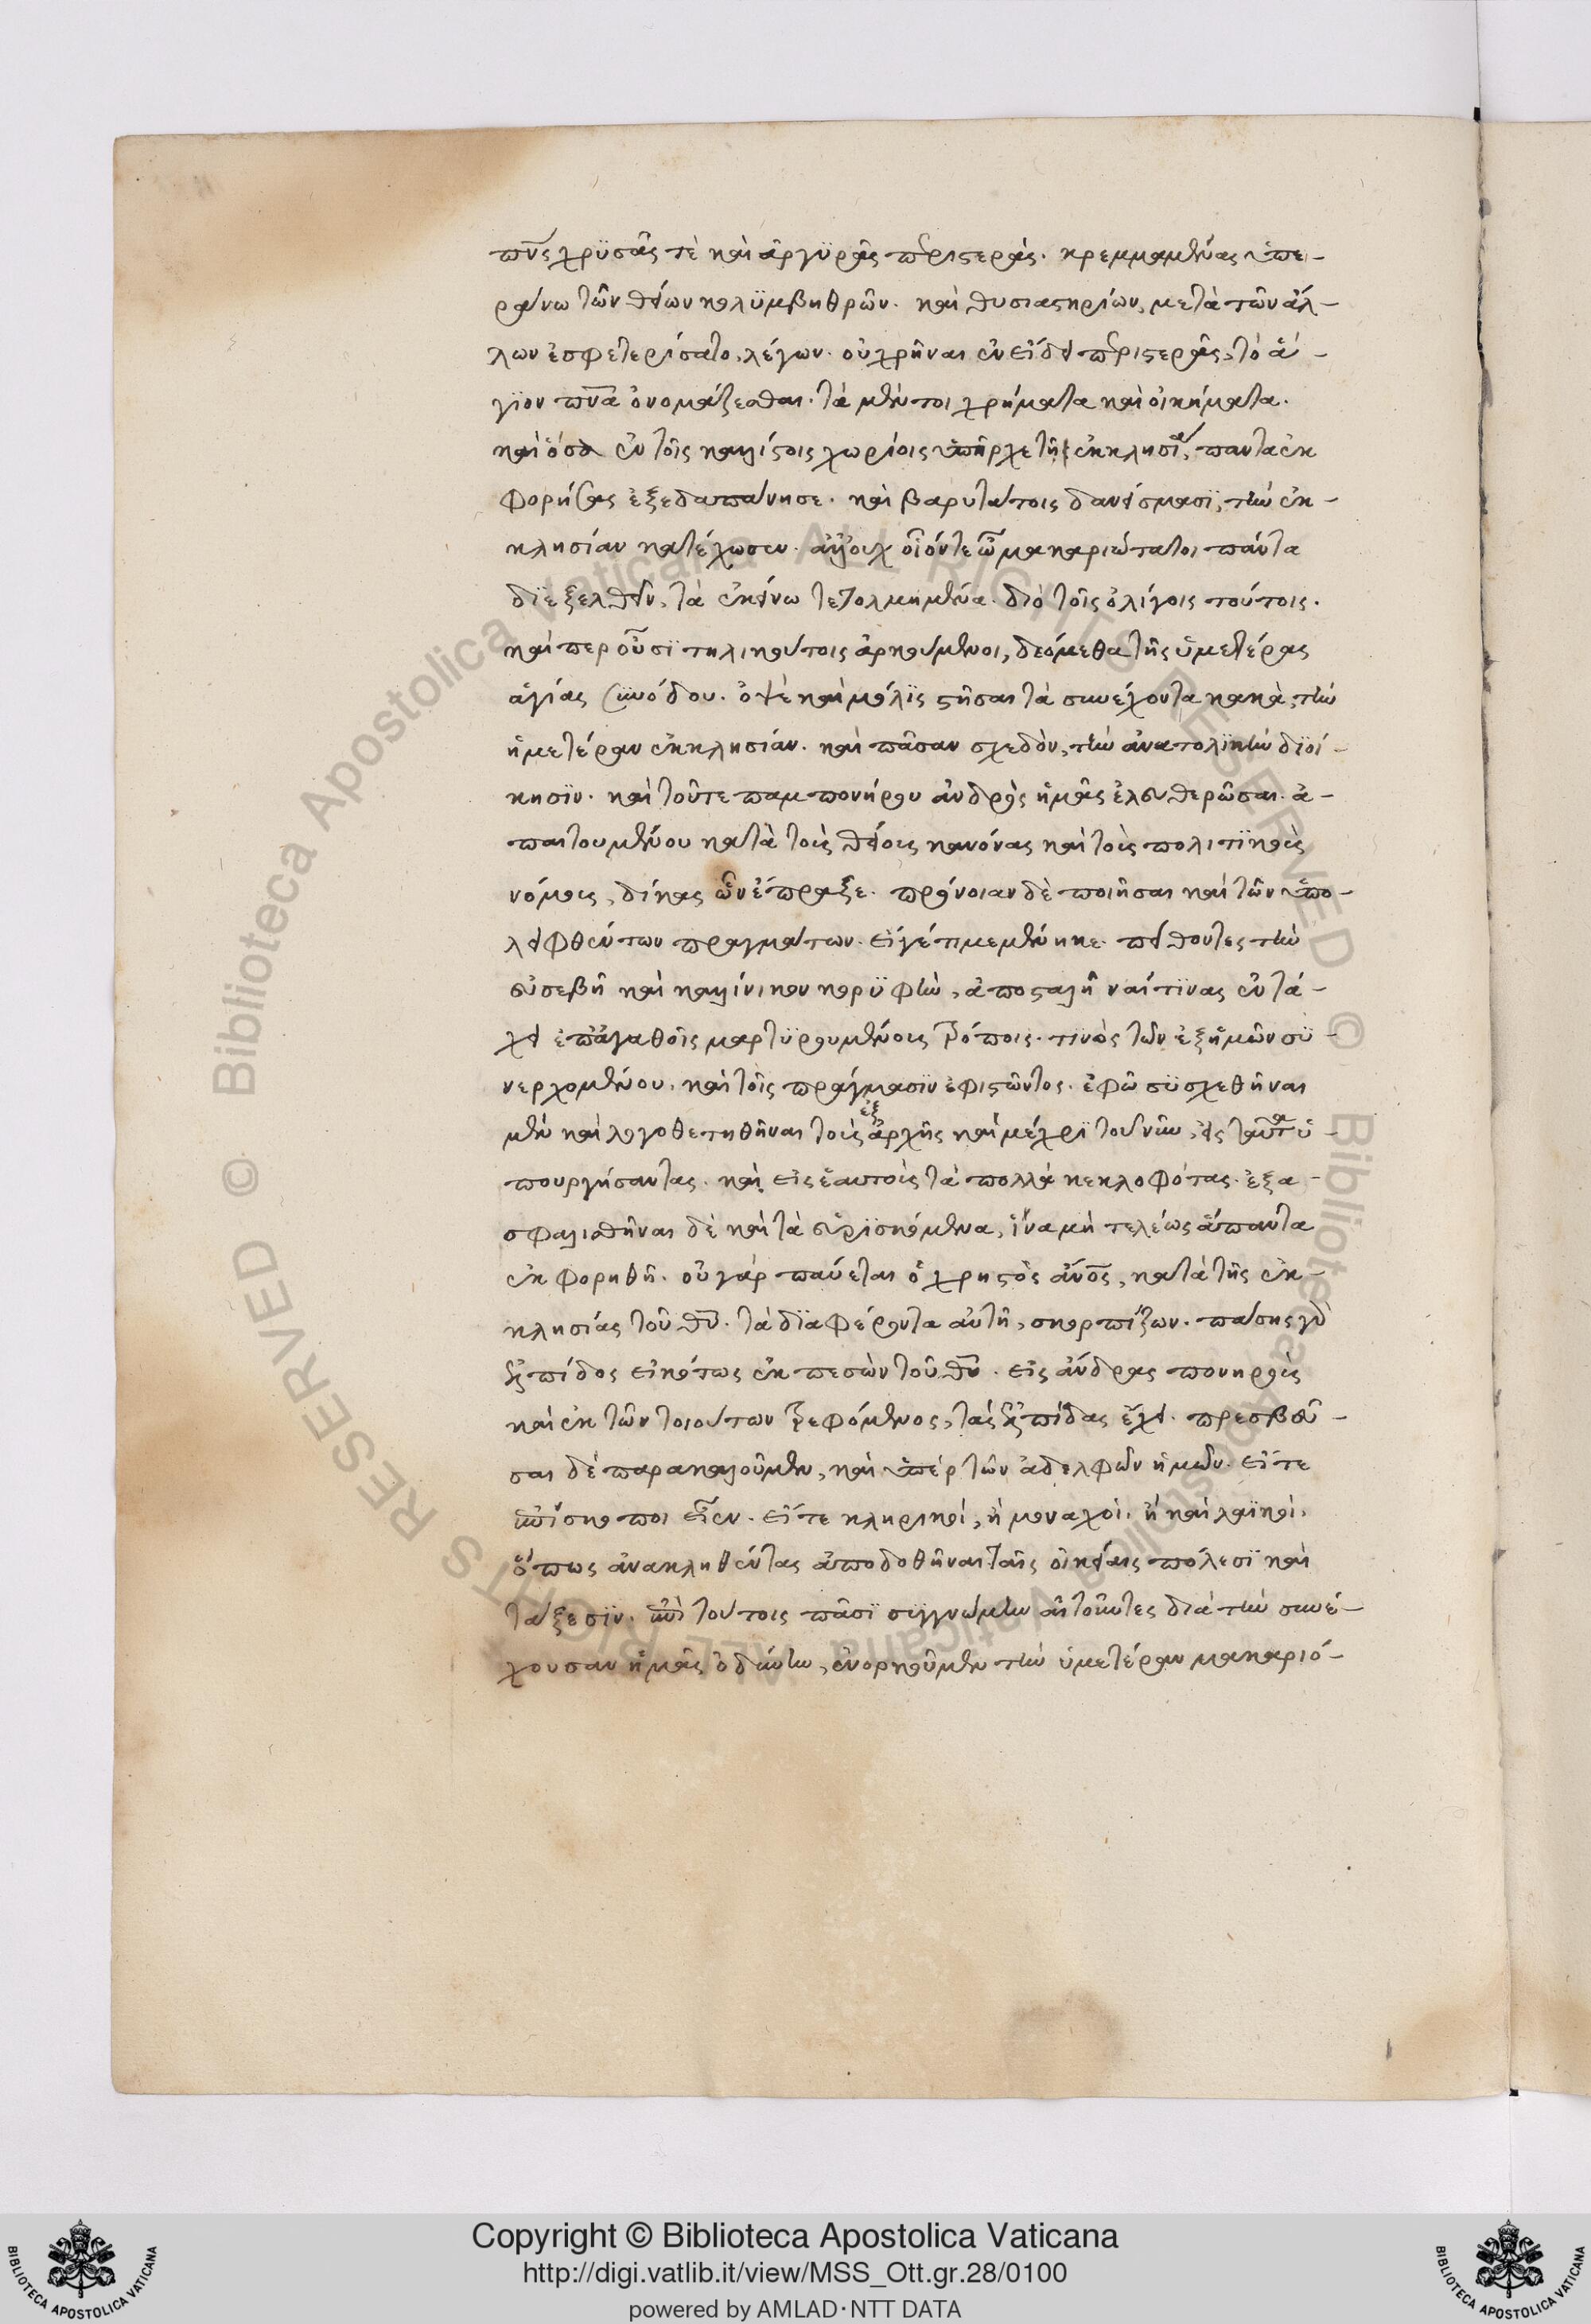 πν̅ς χρϋσᾶς τὲ καὶ ἀργϋρᾶς περιστερὰς. κρεμμαμένας ὑπε-
ράνω τῶν θείων κολϋμβηθρῶν. καὶ θυσιαστηρίων, μετὰ τῶν ἄλ-
λων ἐσφετερίσατο, λέγων. οὐ χρῆναι ἐν εἴδει περιστερᾶς, τὸ ἅ-
γϊον πν̅α ὀνομάζεσθαι. τὰ μέντοι χρήματα καὶ οἰκήματα.
καὶ ὅσα ἐν τοῖς καλλίστοις χωρίοις ὑπῆρχε τῆ ἐκκλησία, παντα ἐκ
φορήσας ἐξεδαπάνησε. καὶ βαρυτάτοις δανείσμασϊ, τὴν ἐκ-
κλησίαν κατέχωσεν. ἀλλ' οὐχ οἷόντε ὦ μακαριώτατοι πάντα
δϊεξελθεῖν, τὰ ἐκείνω τετολμημένα. διὸ τοῖς ὀλίγοις τούτοις.
καὶ περ οὖσϊ τηλικούτοις ἀρκούμενοι, δεόμεθα τῆς ὑμετέρας
ἁγίας συνόδου. ὀψὲ καὶ μόλϊς στῆσαι τὰ συνέχοντα κακὰ, τὴν
ἡμετέραν ἐκκλησίαν. καὶ πᾶσαν σχεδὸν, τὴν ἀνατολϊκὴν δϊοί-
κησϊν. καὶ τοῦτε παμπονήρου ἀνδρὸς ἡμᾶς ἐλευθερῶσαι. ἀ-
παιτουμένου κατὰ τοὺς θείους κανόνας καὶ τοὺς πολιτϊκοὺς
νόμους, δίκας ὧν ἔπραξε. πρόνοιαν δὲ ποιῆσαι καὶ τῶν ὑπο-
λειφθέντων πραγμάτων. εἴγέτι μεμένηκε. πείθοντες τὴν
εὐσεβῆ καὶ καλλίνικον κορϋφὴν, ἀποσταλῆναί τϊνας ἐν τά-
χει ἐπ' ἀγαθοῖς μαρτϋρουμένους τρόποις. τινὸς τῶν ἐξ ἡμῶν σϋ-
νερχομένου. καὶ τοῖς πράγμασϊν ἐφιστῶντος. ἐφῶ σϋσχεθῆναι
μὲν καὶ λογοθετηθῆναι τοὺς ἐξ ἀρχῆς καὶ μέχρϊ τοῦ νῦν, εἰς ταῦτα ὑ-
πουργήσαντας. καὶ εἰς ἑαυτοὺς τὰ πολλὰ κεκλοφότας. ἐξα-
σφαλισθῆναι δὲ καὶ τὰ εὑρϊσκόμενα, ἵνα μὴ τελέως ἅπαντα
ἐκφορηθῆ. οὐ γάρ παύεται ὁ χρηστὸς ἄν̅ο̅ς, κατὰ τῆς ἐκ-
κλησίας τοῦ θ̅υ̅. τὰ δϊαφέροντα αὐτῆ, σκορπίζων. πάσης γὰρ
ἐλπίδος εἰκότως ἐκπεσὼν τοῦ θ̅υ̅. εἰς ἄνδρας πονηροὺς
καὶ ἐκ τῶν τοιούτων τρεφόμενος, τὰς ἐλπίδας ἔχει. πρεσβεῦ-
σαι δὲ παρακαλοῦμεν, καὶ ὑπέρ τῶν ἀδελφῶν ἡμῶν. εἴτε
ἐπίσκοποι εἶεν. εἴτε κληρικοί, ἢ μοναχοὶ. ἢ καὶ λαϊκοὶ.
ὅπως ἀνακληθέντας ἀποδοθῆναι ταῖς οἰκείαις πόλεσϊ καὶ
τάξεσϊν. ἐπὶ τούτοις πᾶσϊ συγγνώμην αἰτοῦντες διὰ τὴν συνέ-
χουσαν ἡμᾶς ὀδύνην, ἐνορκοῦμεν τὴν ὑμετέραν μακαριό-
Copyright © Biblioteca Apostolica Vaticana
http://digi.vatlib.it/view/MSS_Ott.gr.28/0100
powered by AMLAD·NTT DATA
BIBLIOTECA APOSTOLICA VATICANA
BIBLIOTECA APOSTOLICA VATICANA
© Biblioteca Apostolica Vaticana ALL RIGHTS RESERVED
© Biblioteca Apostolica Vaticana ALL RIGHTS RESERVED